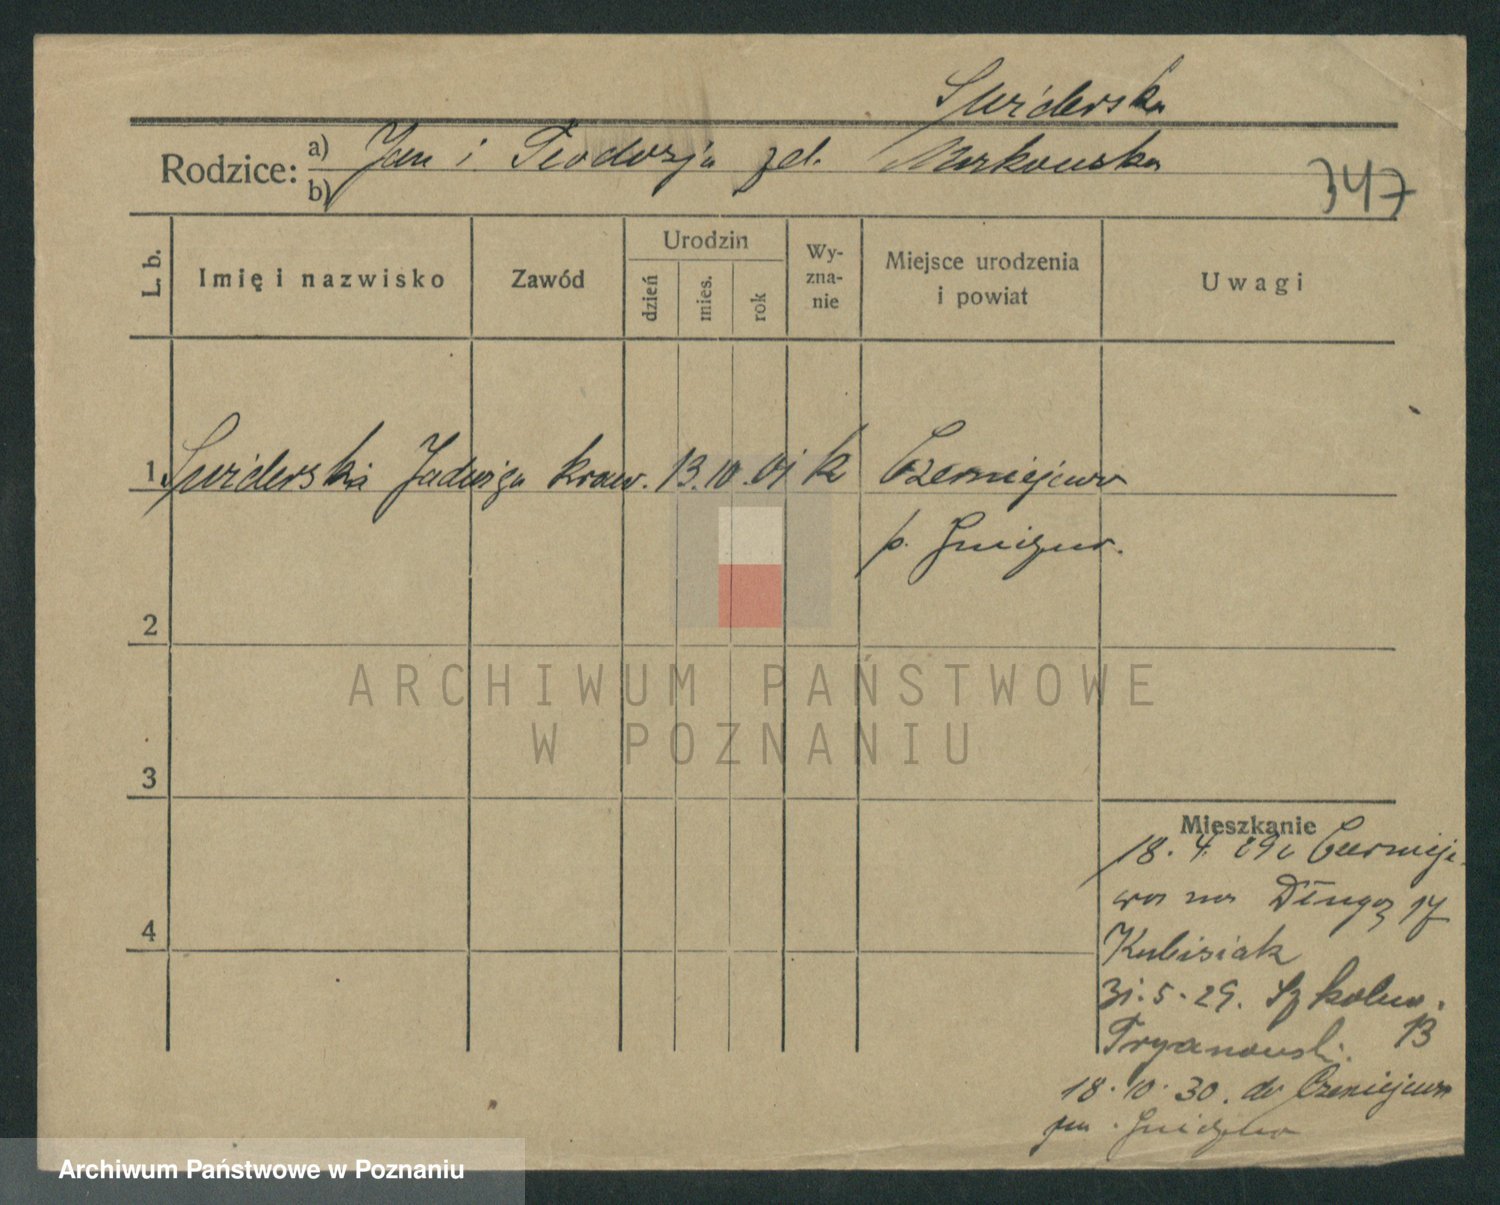 Świderska
Rodzice: a) Jan i Teodozja zd. Markowska
b)
347
L. b. Imię i nazwisko Zawód Urodzin dzień mies. rok Wy-zna-nie Miejsce urodzenia i powiat Uwagi
1 Świderska Jadwiga kraw. 13. 10. 01 k Czerniejewo
p. Gniezno.
2
ARCHIWUM PAŃSTWOWE
W POZNANIU
3
Mieszkanie
18. 4. 29 z Czernieje-
wa na Długą 17
4
Kubisiak
31. 5. 29. Szkolna. 13
18. 10. 30. do Czerniejewa
Gniezno
Archiwum Państwowe w Poznaniu